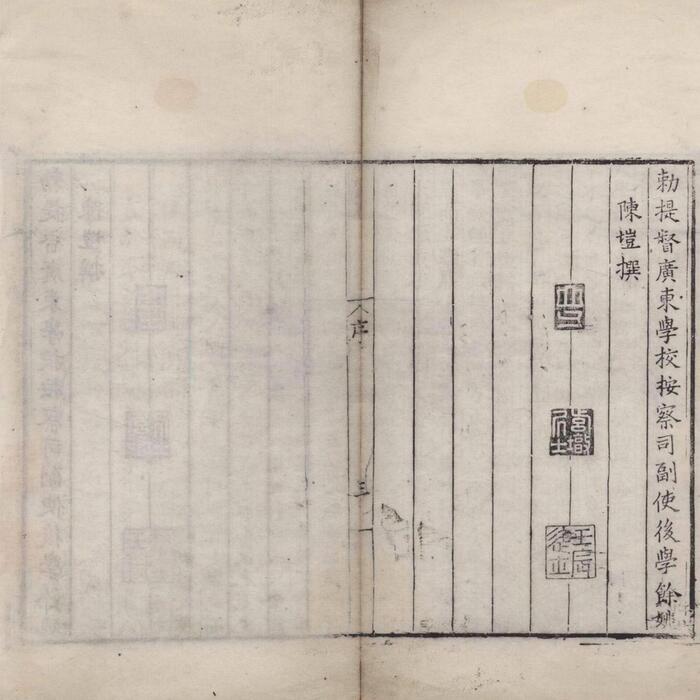 勅提督廣東學校按察司副使後學餘姚
陳塏撰
序
三